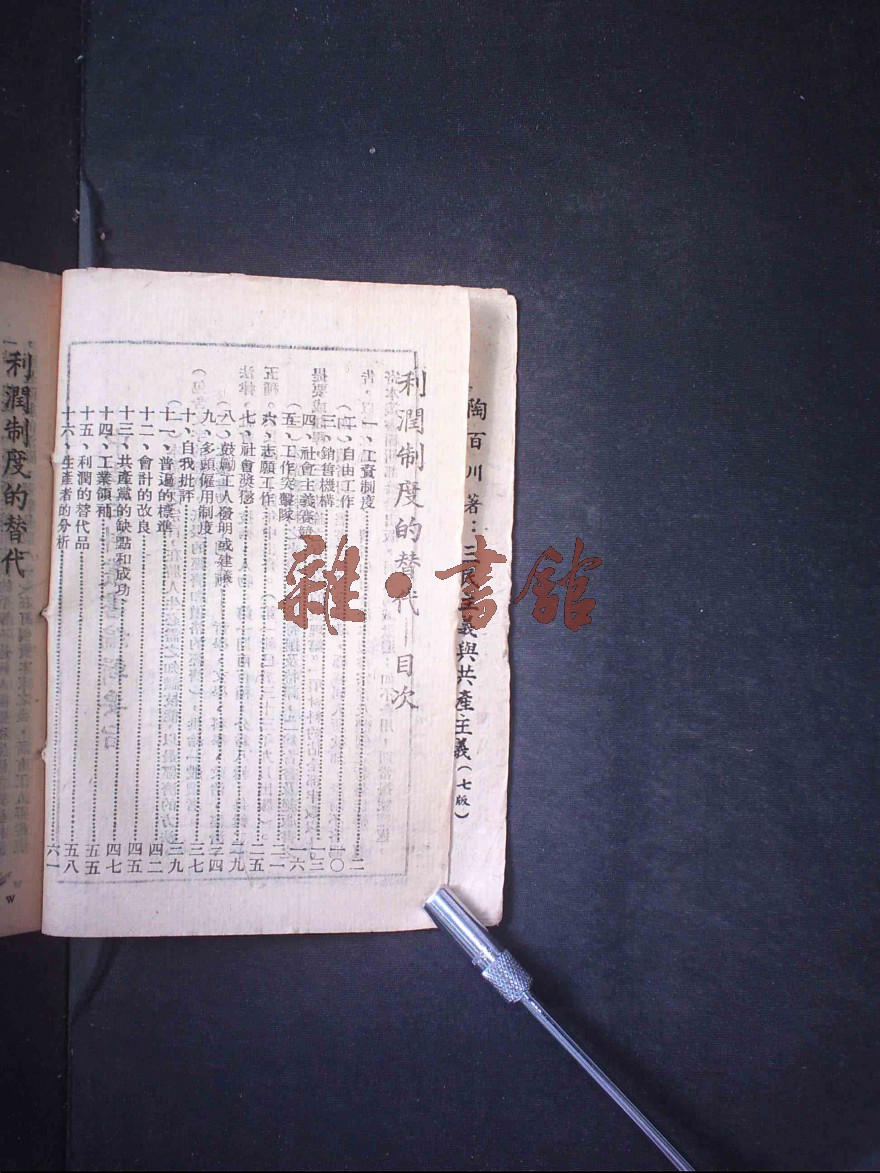 陶百川著：三民主義與共產主義（七版）
利潤制度的替代＝目次
一、工資制度……二
二、自由工作……一〇
三、銷售機構……一三
四、社會主義競賽……一六
五、工作突擊隊……二一
六、志願工作……二五
七、社會獎懲……二九
八、鼓勵工人發明或建議……三四
九、多頭僱用制度……三七
十、自我批評……三九
十一、普遍的標準……四二
十二、會計的改良……四五
十三、共產黨的缺點和成功……四七
十四、工業領袖……五五
十五、利潤的替代品……五八
十六、生產者的分析……六一
利潤制度的替代
雜·書館